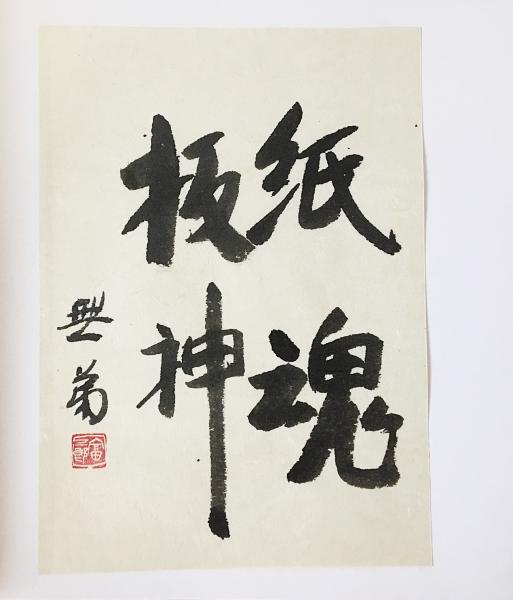 紙魂
板神
無